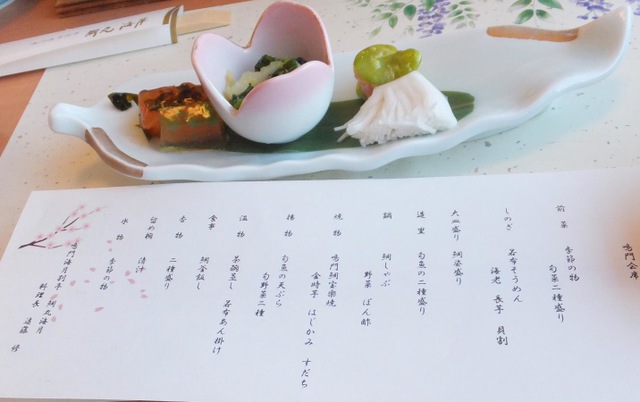 鳴門会席
前菜 季節の物
旬菜二種盛り
しのぎ 若布そうめん
海老 長芋 貝割
大皿盛り 鯛姿盛り
造里 旬魚の二種盛り
鍋 鯛しゃぶ
野菜 ぽん酢
焼物 鳴門鯛宝楽焼
金時芋 はじかみ すだち
揚物 旬魚の天ぷら
旬野菜二種
温物 茶碗蒸し 若布あん掛け
食事 鯛釜飯し
香物 二種盛り
留め椀 清汁
水物 季節の物
鳴門海月別亭 鯛丸海月
料理長 遠藤 修